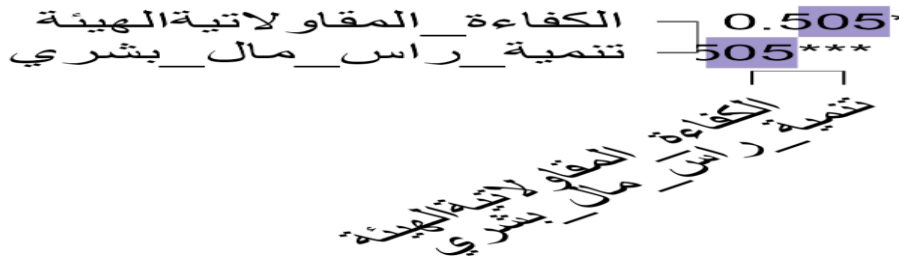 الكفاءة_المقاولاتيةالهيئة 0.505*
تنمية_راس_مال_بشري 505***
الكفاءة_المقاولاتيةالهيئة
تنمية_راس_مال_بشري